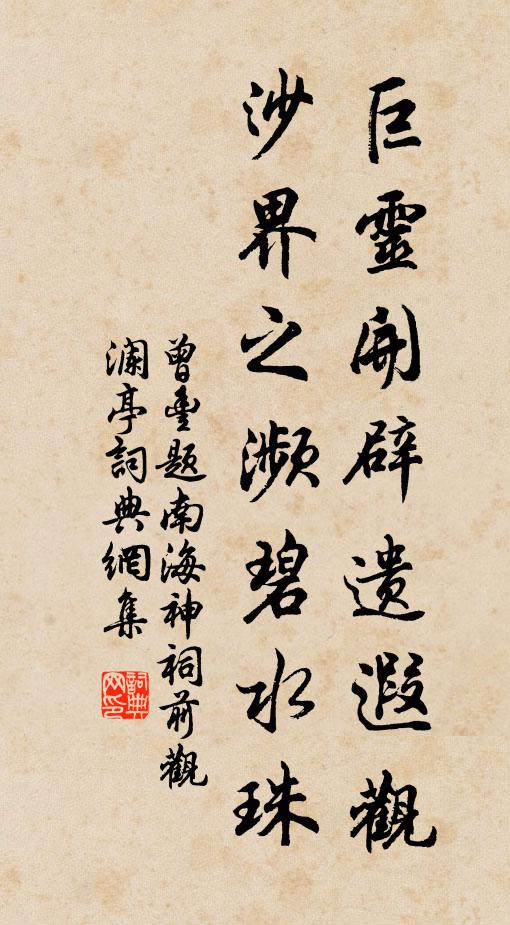 巨靈開辟遺遐觀
沙界之瀕碧水珠
曾豊題南海神祠前觀
瀾亭詞典網集
詞典
网印